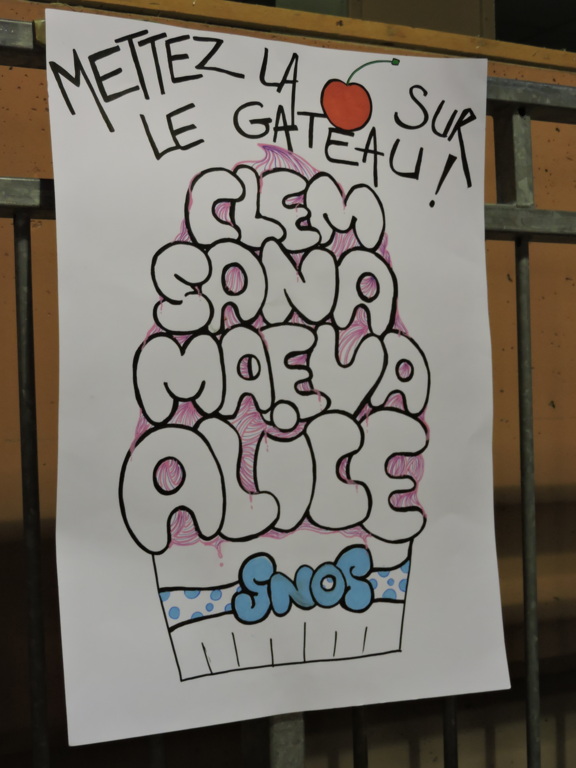 METTEZ LA SUR
LE GATEAU!
CLEM
SANA
MAEVA
ALICE
SNOS